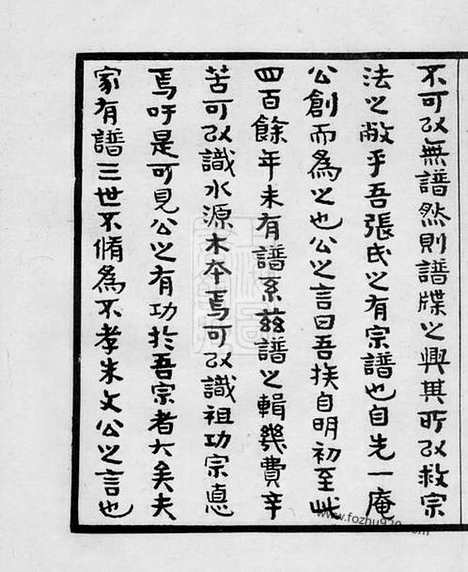 不可以無譜然則譜牒之興其所以救宗
法之敝乎吾張氏之有宗譜也自先一庵
公創而為之也公之言曰吾族自明初至此
四百餘年未有譜系茲譜之輯幾費辛
苦可以識水源木本焉可以識祖功宗惪
焉吁是可見公之有功於吾宗者大矣夫
家有譜三世不脩為不孝朱文公之言也